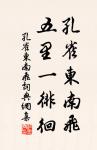 孔雀東南飛
五里一徘徊
孔雀東南飛詞典網集